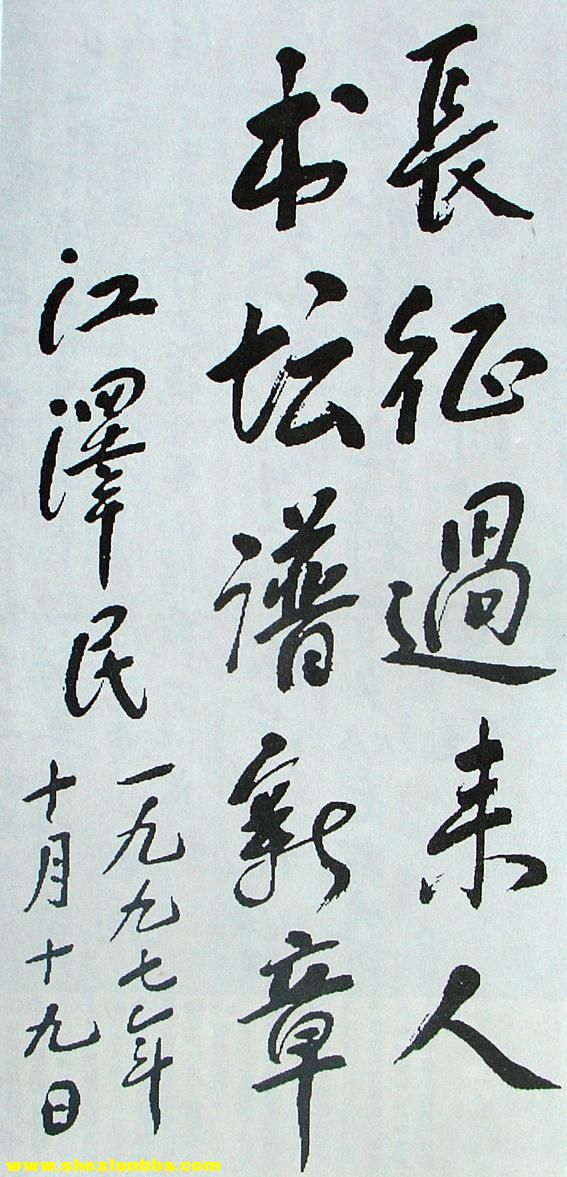 長征過来人
书坛谱新章
江澤民
一九九七年
十月十九日
www.shexianbbs.com